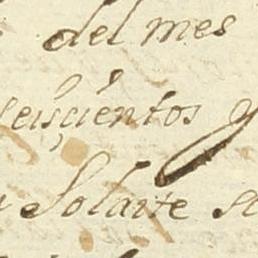 del mes
seiscientos y
Solarte